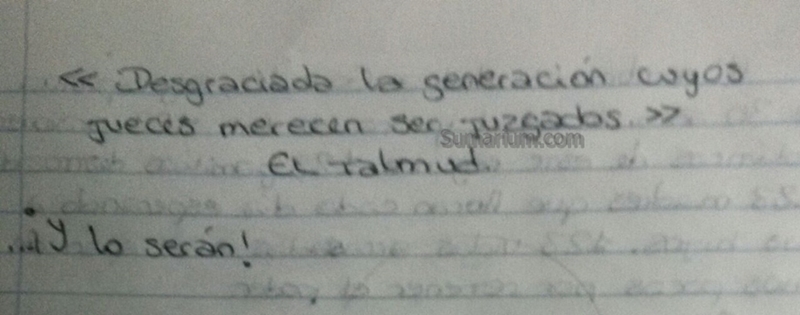 « Desgraciada la generación cuyos
jueces merecen ser juzgados. »
Sumarium.com
El Talmud.
...¡Y lo serán!